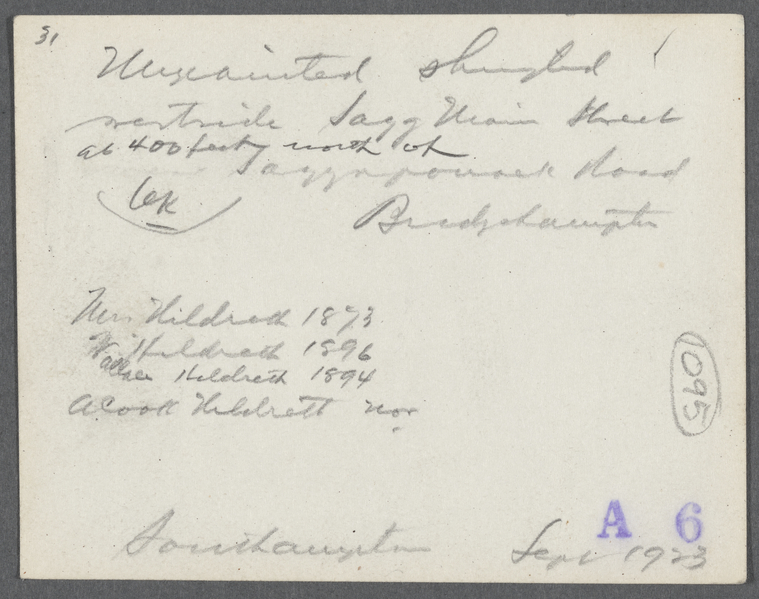 31
Unpainted shingled
westside Sagg Main Street
at 400 feet north of
Sagg
Road
Bridgehampton
OK
Mrs Hildreth 1873
W. Hildreth 1896
Wallace Hildreth 1894
A Cook Hildrett
1095
A 6
Southampton Sept 1923